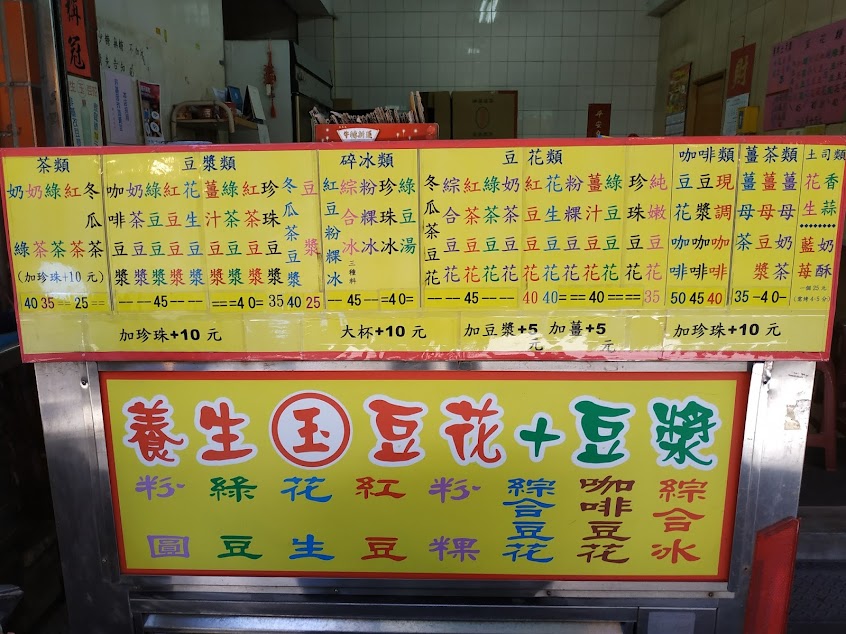 茶類
奶綠
奶茶
綠茶
紅茶
冬瓜茶
(加珍珠+10元)
40 35 == 25 ==
豆漿類
咖啡豆漿
奶茶豆漿
綠豆豆漿
紅豆豆漿
花生豆漿
薑汁豆漿
綠茶豆漿
紅茶豆漿
珍珠豆漿
冬瓜茶豆漿
豆漿
---45--- ===40= 35 40 25
碎冰類
紅豆粉粿冰
綜合冰
三種料
粉粿冰
珍珠冰
綠豆湯
--45--=40=
豆花類
冬瓜茶豆花
綜合豆花
紅茶豆花
綠茶豆花
奶茶豆花
紅豆豆花
花生豆花
粉粿豆花
薑汁豆花
綠豆豆花
珍珠豆花
純嫩豆花
--45--- 40 40===40====35
咖啡類
豆花咖啡
豆漿咖啡
現調咖啡
50 45 40
薑茶類
薑母茶
薑母豆漿
薑母奶茶
35 -40-
土司類
花生
香蒜
藍莓
奶酥
一個25元
(需烤4-5分)
加珍珠+10元
大杯+10元
加豆漿+5元
加薑+5元
加珍珠+10元
養生玉豆花+豆漿
粉圓
綠豆
花生
紅豆
粉粿
綜合豆花
咖啡豆花
綜合冰
財